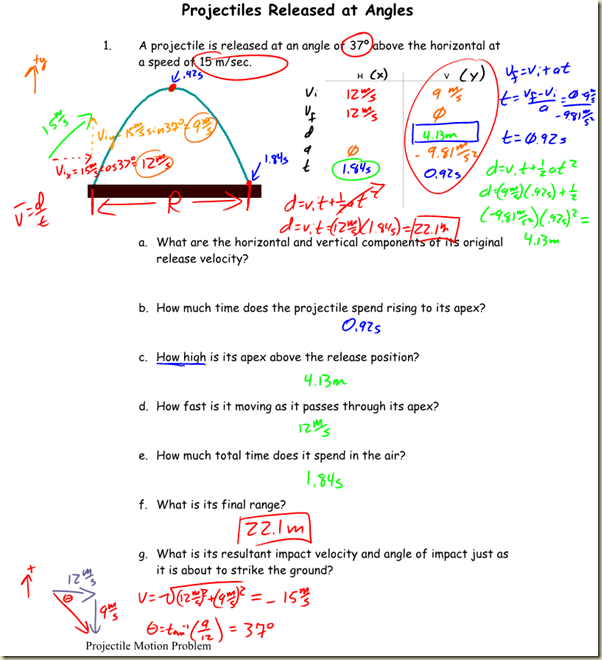 Projectiles Released at Angles
1. A projectile is released at an angle of 37° above the horizontal at
a speed of 15 m/sec.
+y
.92s
15 m/s
Viy = 15 m/s sin37° = 9 m/s
Vix = 15 m/s cos37° = 12 m/s
1.84s
R
V̄ = d/t
H (x) V (y)
Vi 12 m/s 9 m/s
Vf 12 m/s Ø
d 4.13m
a Ø -9.81 m/s²
t 1.84s 0.92s
d=vit+½at²
d=vit=(12 m/s)(1.84s)=22.1m
Vf=Vi+at
t=(Vf-Vi)/a = (Ø-9 m/s)/(-9.81 m/s²)
t=0.92s
d=vit+½at²
d=(9 m/s)(.92s)+½
(-9.81 m/s²)(.92s)²=
4.13m
a. What are the horizontal and vertical components of its original
release velocity?
b. How much time does the projectile spend rising to its apex?
0.92s
c. How high is its apex above the release position?
4.13m
d. How fast is it moving as it passes through its apex?
12 m/s
e. How much total time does it spend in the air?
1.84s
f. What is its final range?
22.1m
g. What is its resultant impact velocity and angle of impact just as
it is about to strike the ground?
+
12 m/s
θ
9 m/s
V=√((12 m/s)²+(9 m/s)²) = -15 m/s
θ=tan⁻¹(9/12) = 37°
Projectile Motion Problem